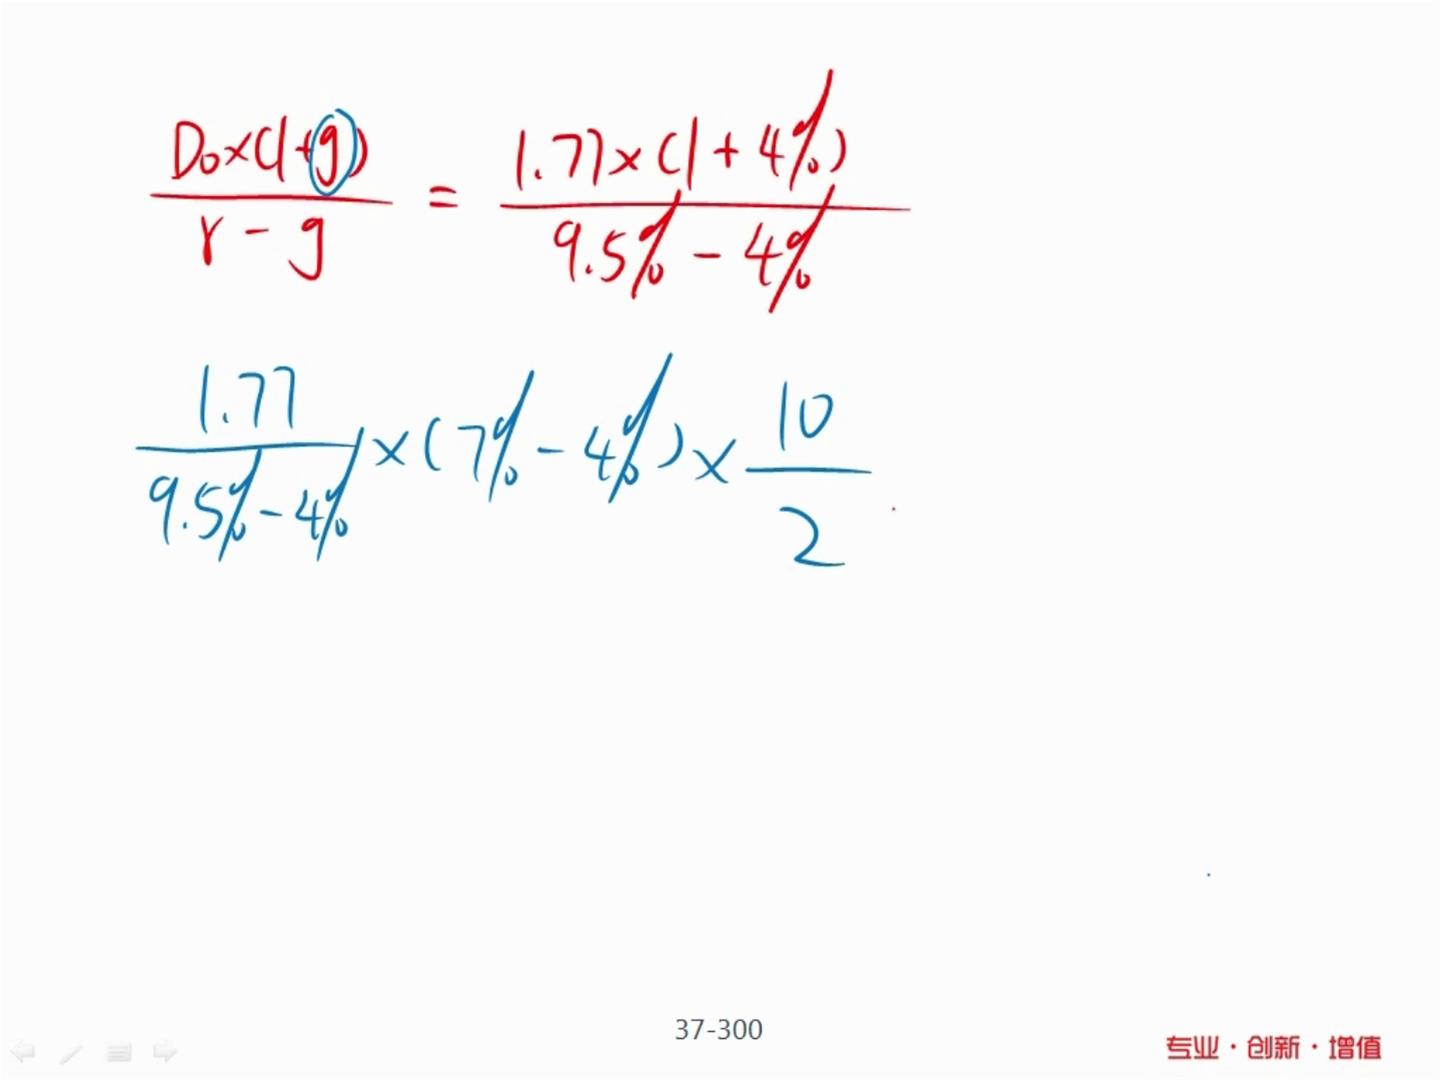 D₀×(1+g) / r-g = 1.77×(1+4%) / 9.5%-4%
1.77 / 9.5%-4% ×(7%-4%)× 10 / 2
37-300
专业·创新·增值